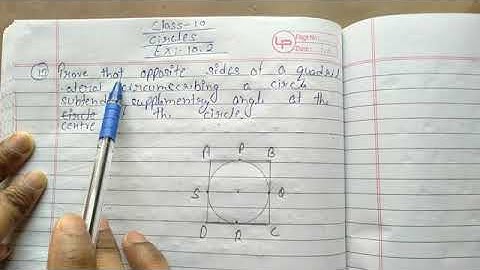 Class-10
Circles
EX:- 10.2
Page No.
Date
Prove that opposite sides of a quadril
-ateral circumscribing a circle
subtend supplementry angle at the
centre of the circle.
A P B
S Q
D R C